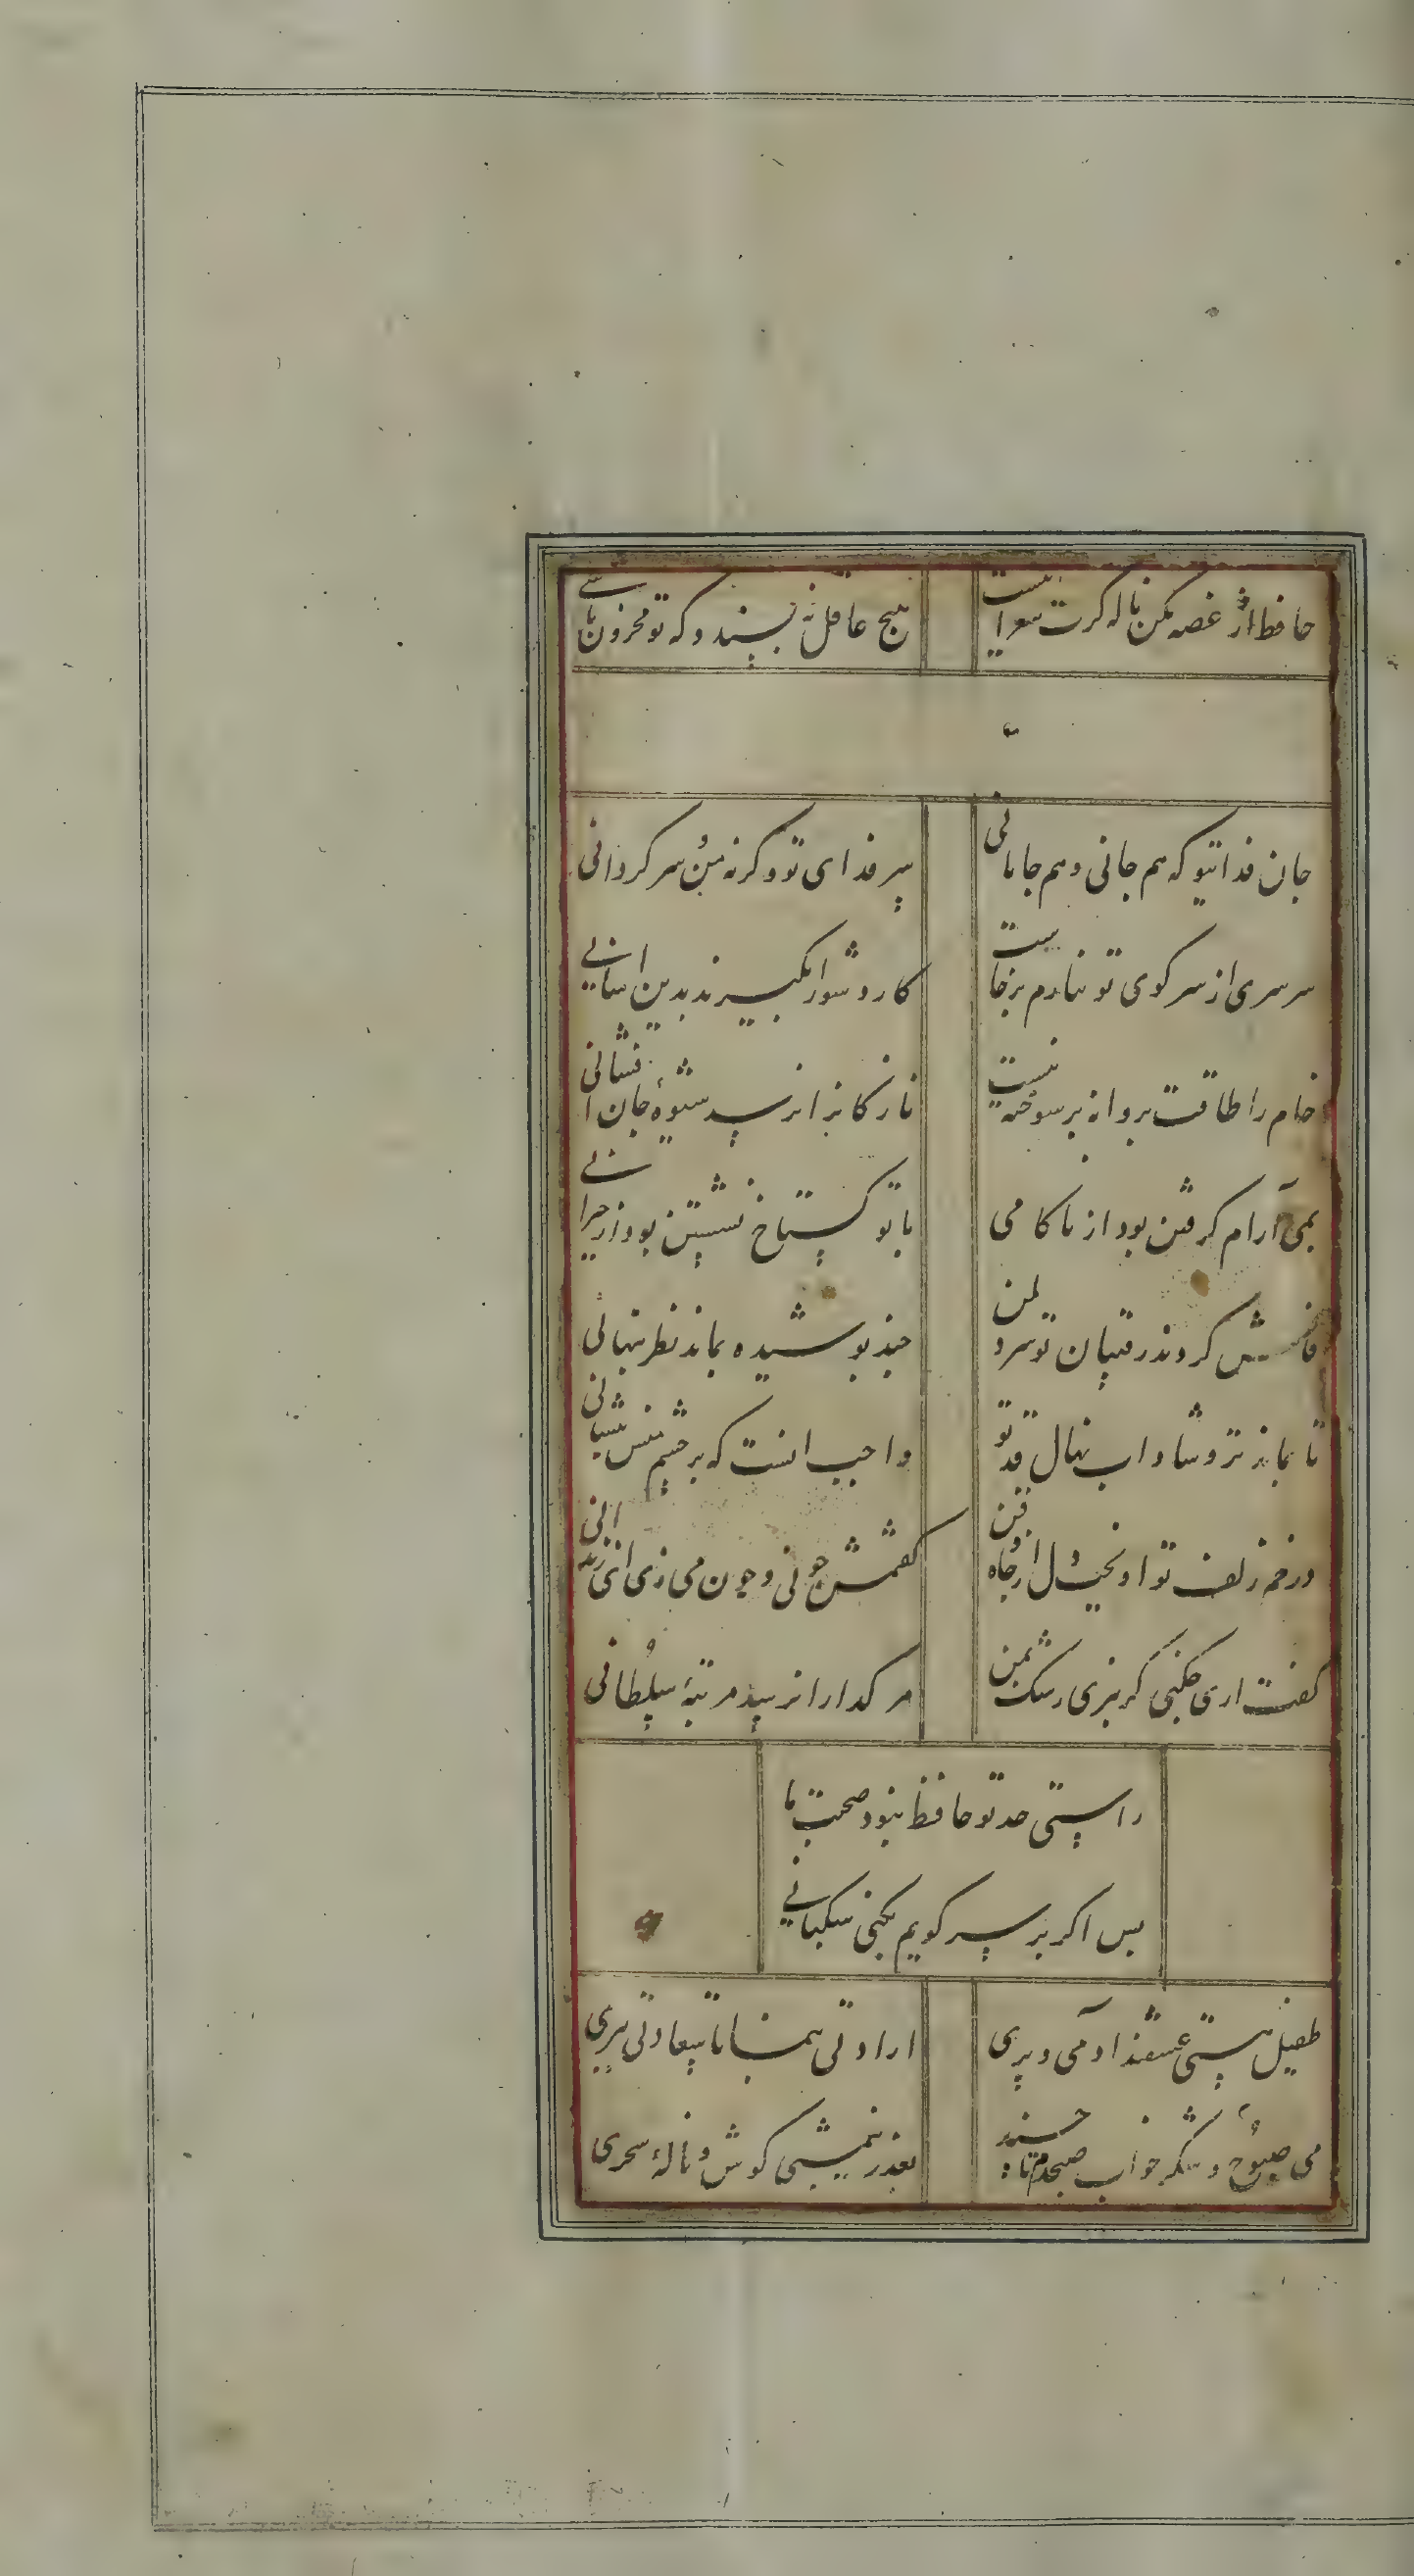 حافظ از غصه مکن ناله کرت شعر اینست
هیچ عاقل نه پسندد که تو محزون باشی
جان فدا تیو که هم جانی و هم جانانی
سر فدای تو و کرنه من و سر کردانی
سرسری از سر کوی تو نیارم برخاست
کار دشوار نکیرند بدین اسانی
خام را طاقت پروانه پر سوخته نیست
نازکانرا نرسد شیوهٔ جان افشانی
بی آرام کرفتن بود از ناکامی
با تو کستاخ نشستن بود از حیرانی
فاش کردند رقیبان تو سر دل من
چند پوشیده بماند نظر پنهانی
تا بماند تر و شاداب نهال قد تو
واجب انست که بر چشم منش بنشانی
در خم زلف تو اویخت دل از چاه ذقن
کفتمش چونی و چون می زی ای زندانی
کفت اری چکنی کر نبری رشک بمن
هر کدا را نرسد مرتبهٔ سلطانی
راستی حد تو حافظ نبود صحبت ما
بس اکر بر سر کویم بکنی سکبانی
طفیل هستی عشقند ادمی و پری
ارادتی بنما تا سعادتی ببری
می صبوح و شکر خواب صبحدم تا چند
بعذر نیمشبی کوش و نالهٔ سحری